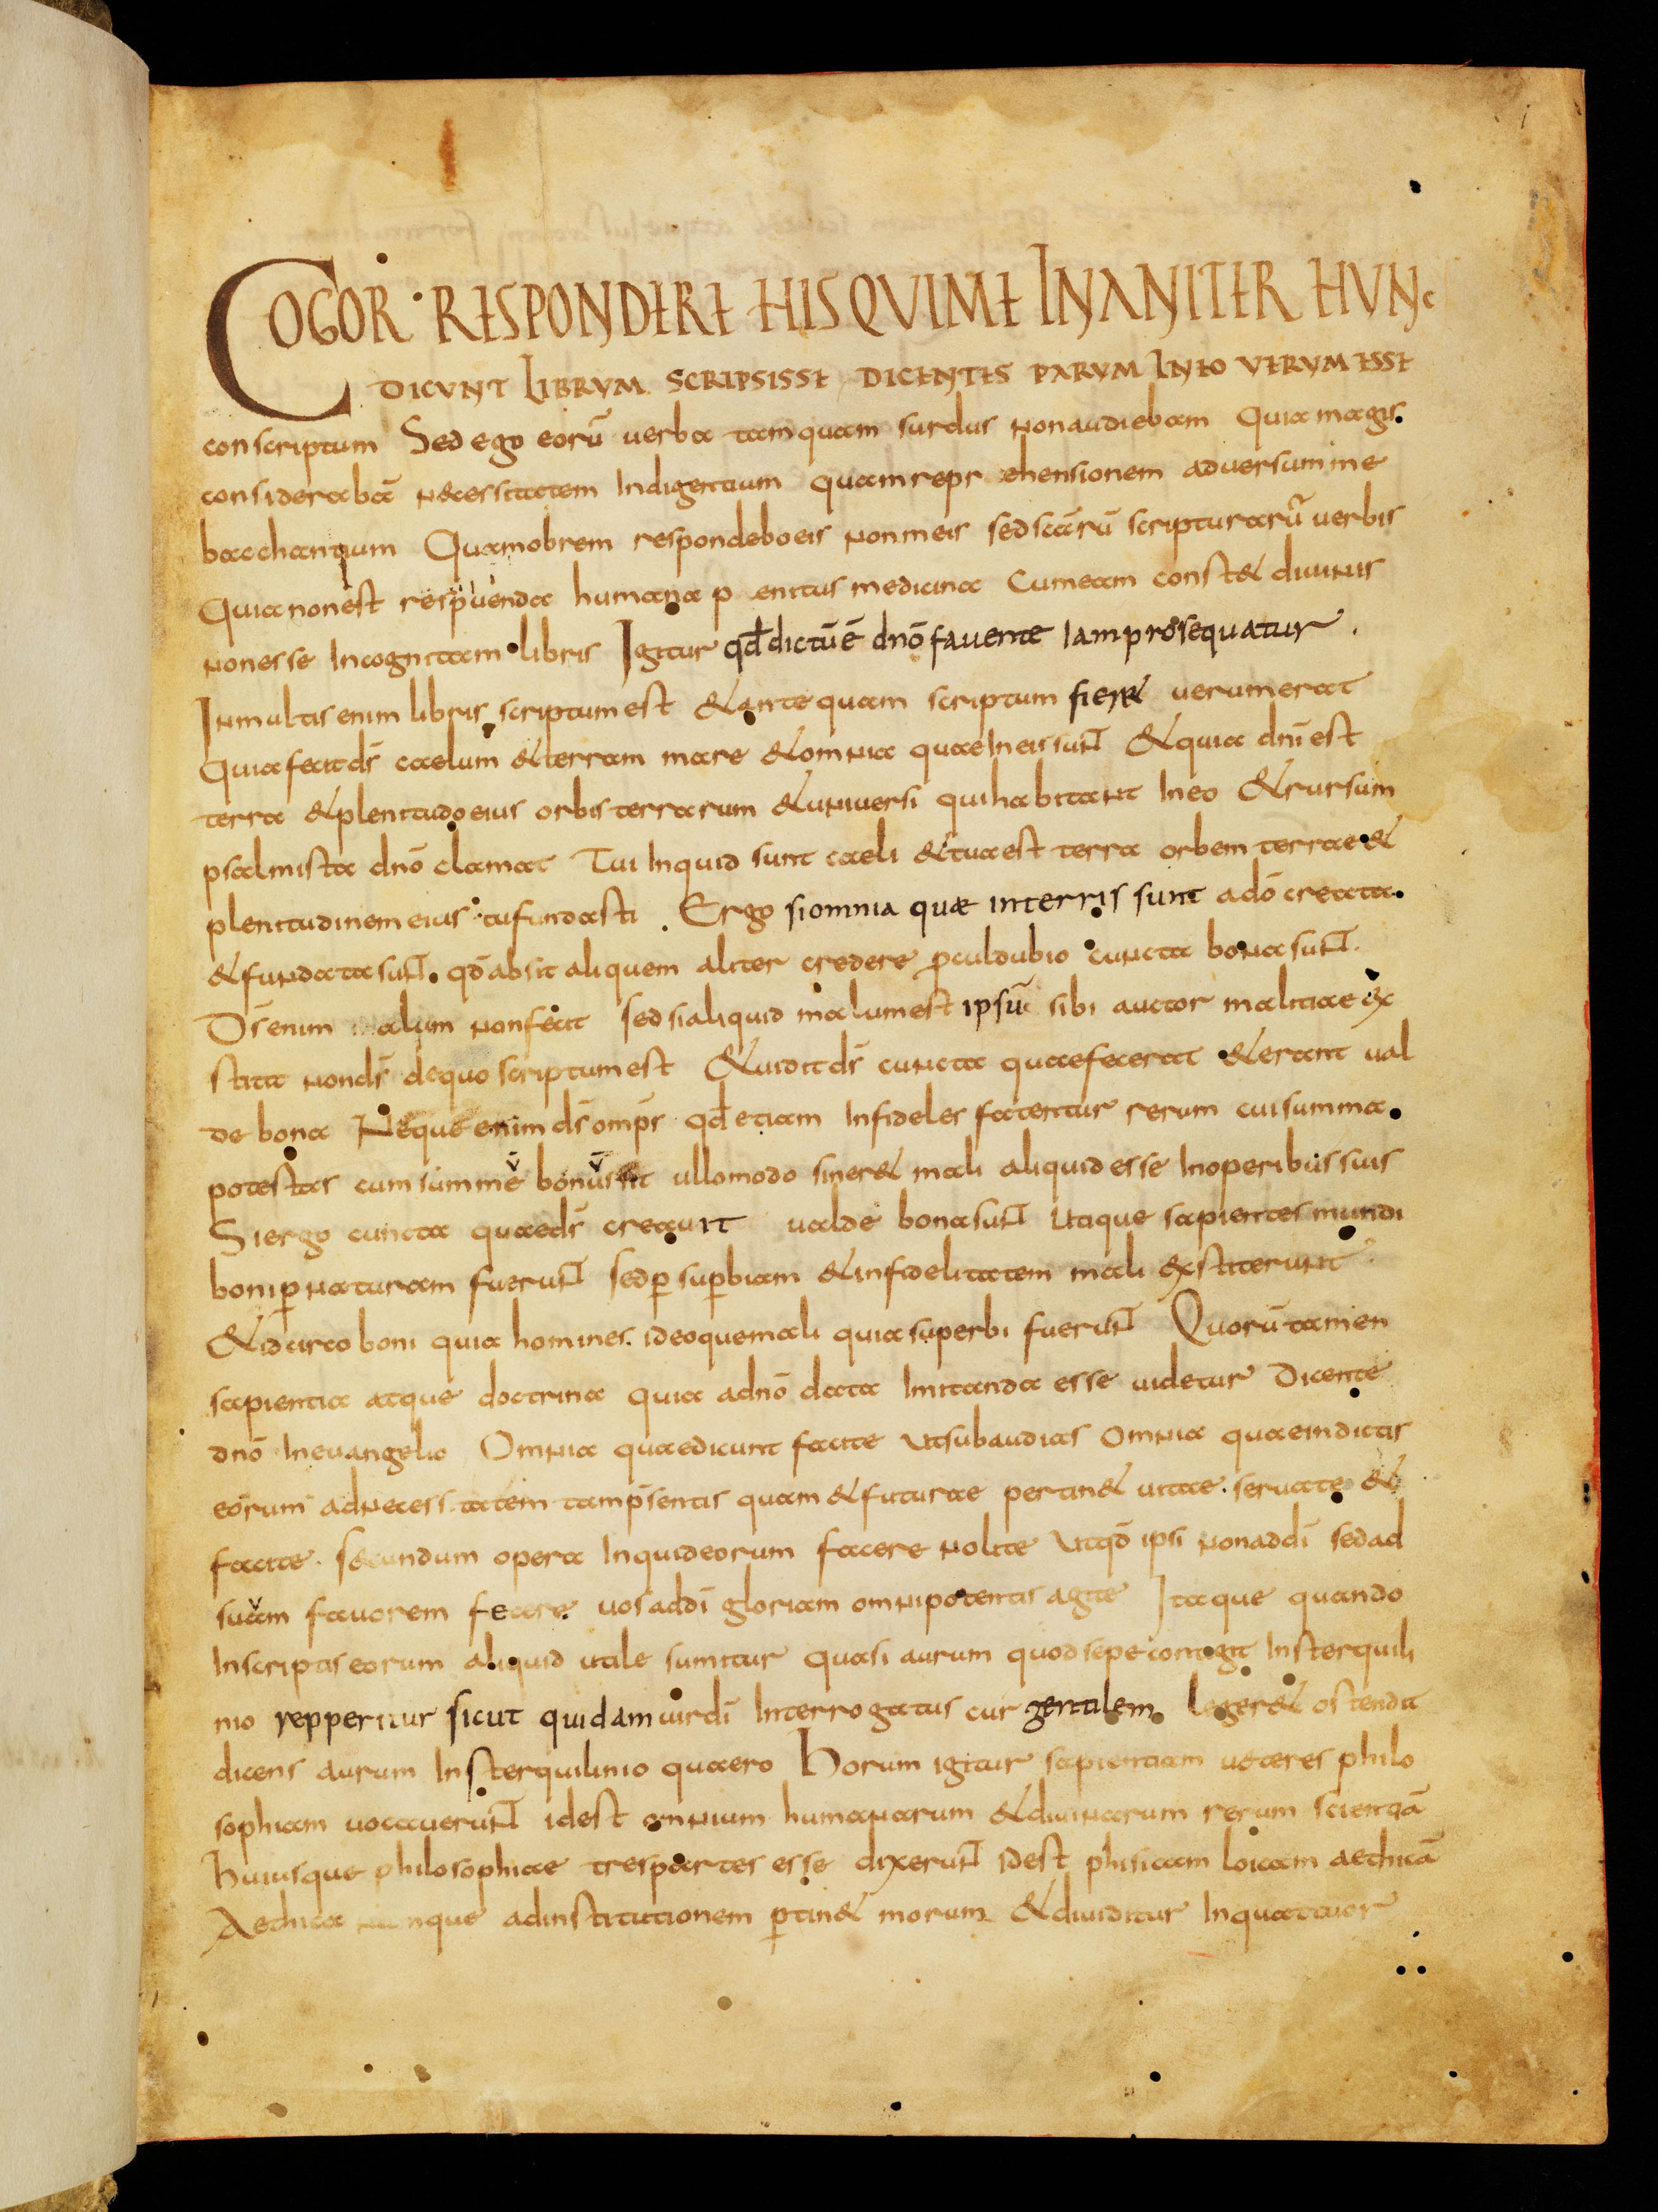 COGOR RESPONDERE HIS QVI ME INANITER HVNc
DICVNT LIBRVM SCRIPSISSE DICENTES PARVM IN EO VERVM ESSE
conscriptum Sed ego eorū verba tamquam surdus non audiebam Quia magis
considerabā necessitatem Indigentium quam reprehensionem adversum me
bacchantium Quamobrem respondebo eis non meis sed scārū scripturarū verbis
Quia non est respuenda humana penitus medicina Cum eam const& divinis
non esse Incognitam libris Igitur qd dictū ē dnō favente Iam prosequatur.
In multis enim libris scriptum est & antequam scriptum fier& verum erat
Quia fecit ds̄ caelum & terram mare & omnia quae In eis sunt & quia dnī est
terra & plenitudo eius orbis terrarum & universi qui habitant In eo & rursum
psalmista dnō clamat Tui Inquid sunt caeli & tua est terra orbem terrae &
plenitudinem eius tu fundasti. Ergo si omnia quae in terris sunt a dō creata
& fundata sunt. qd̄ absit aliquem aliter credere proculdubio cuncta bona sunt.
Ds̄ enim malum non fecit sed si aliquid malum est ipsū sibi auctor malitiae ex
stitit non ds̄ de quo scriptum est & vidit ds̄ cuncta quae fecerat & erant val
de bona Neque enim ds̄ omps̄ qd etiam Infideles fatentur rerum cui summa
potestas cum summe bonus sit ullo modo siner& mali aliquid esse In operibus suis
Si ergo cuncta quae ds̄ creavit valde bona sunt Utique sapientes mundi
boni p naturam fuerunt sed p supbiam & infidelitatem mali exstiterunt
& idcirco boni quia homines. ideoque mali quia superbi fuerunt Quorū tamen
sapientia atque doctrina quia a dnō data Imitanda esse videtur Dicente
dnō In evangelio Omnia quae dicunt facite Ut subaudias Omnia quae in dictis
eorum ad necessitatem tam psentis quam & futurae pertin& vitae. servate &
facite. secundum opera Inquid eorum facere nolite Ut qd̄ ipsi non ad dī sed ad
suum favorem fecere vos ad dī gloriam omnipotentis agite Itaque quando
In scriptis eorum aliquid utile sumitur quasi aurum quod sepe contigit In sterquili
nio repperitur sicut quidam vir dī Interrogatus cur gentilem leger& ostendit
dicens aurum In sterquilinio quaero Horum igitur sapientiam veteres philo
sophiam vocaverunt id est omnium humanarum & divinarum rerum scientiā
huiusque philosophiae tres partes esse dixerunt Id est phisicam loicam aethicā
Aethica namque ad institutionem ptin& morum & dividitur In quattuor